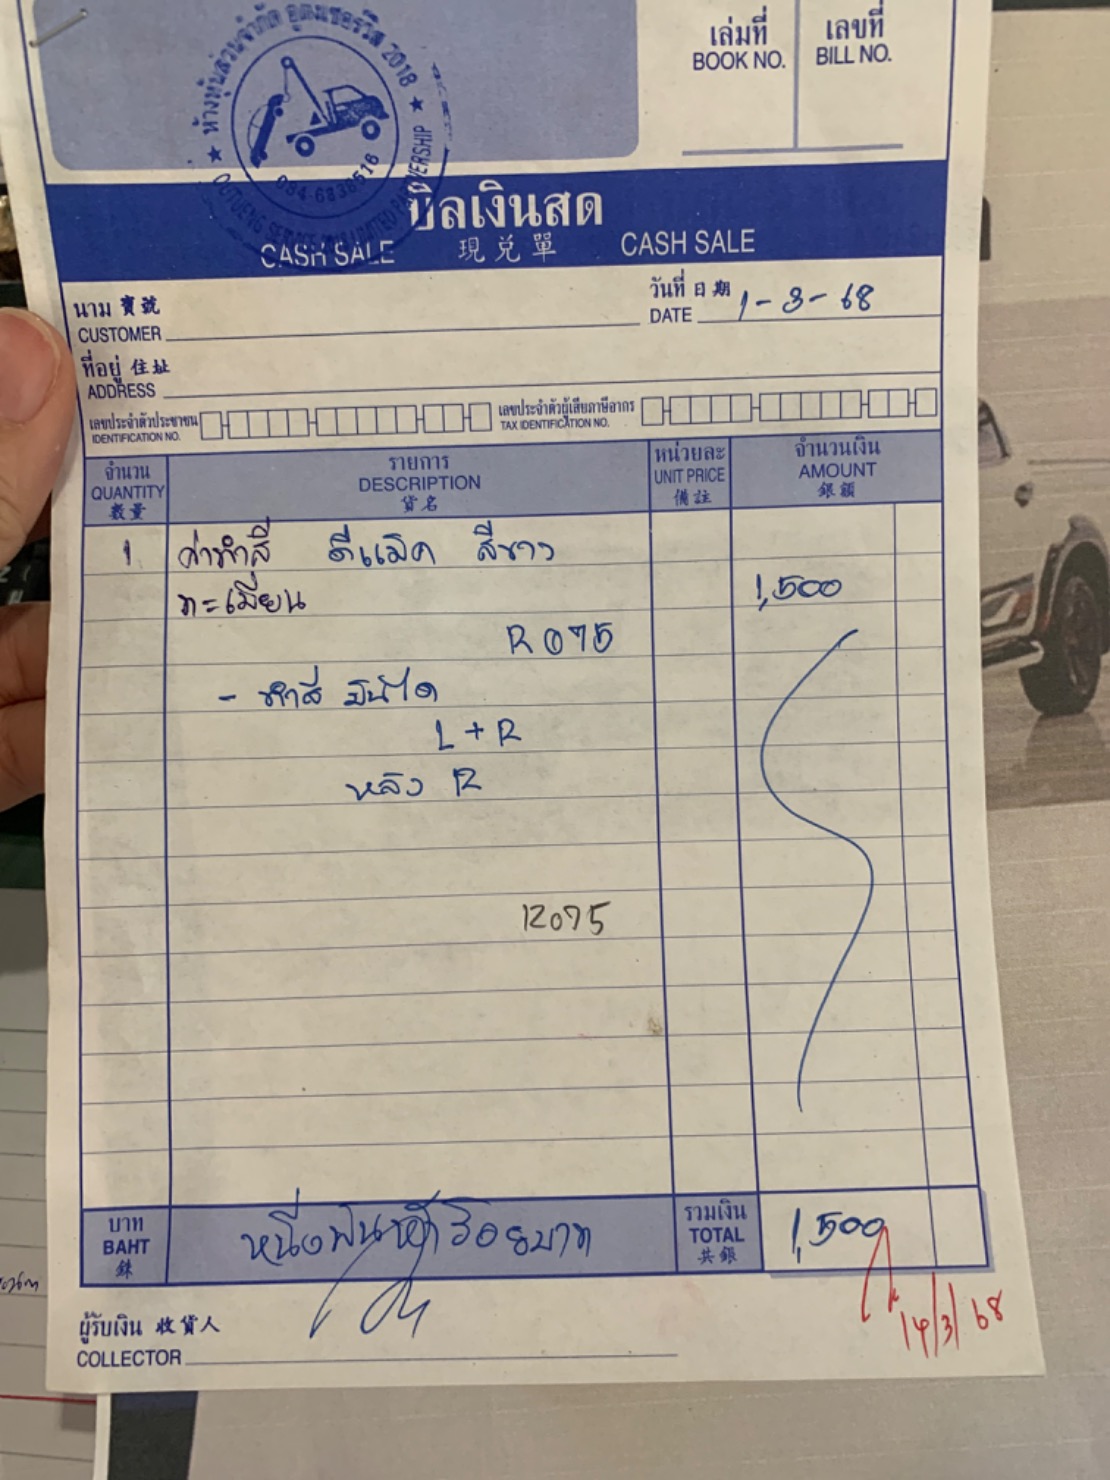 ห้างหุ้นส่วนจำกัด อู่ตงเซอร์วิส 2018
084-6838616
เล่มที่ เลขที่
BOOK NO. BILL NO.
บิลเงินสด
CASH SALE 現兑單 CASH SALE
นาม 寳號
CUSTOMER
วันที่ 日期 1-3-68
DATE
ที่อยู่ 住址
ADDRESS
เลขประจำตัวประชาชน
IDENTIFICATION NO.
เลขประจำตัวผู้เสียภาษีอากร
TAX IDENTIFICATION NO.
จำนวน รายการ หน่วยละ จำนวนเงิน
QUANTITY DESCRIPTION UNIT PRICE AMOUNT
數量 貨名 備註 銀額
1 ค่าทำสี ดีแม็ค สีขาว
ทะเบียน 1,500
R075
- ทำสี บันได
L + R
หลัง R
R075
บาท หนึ่งพันห้าร้อยบาท รวมเงิน 1,500
BAHT TOTAL
銖 共銀
14/3/68
ผู้รับเงิน 收貨人
COLLECTOR